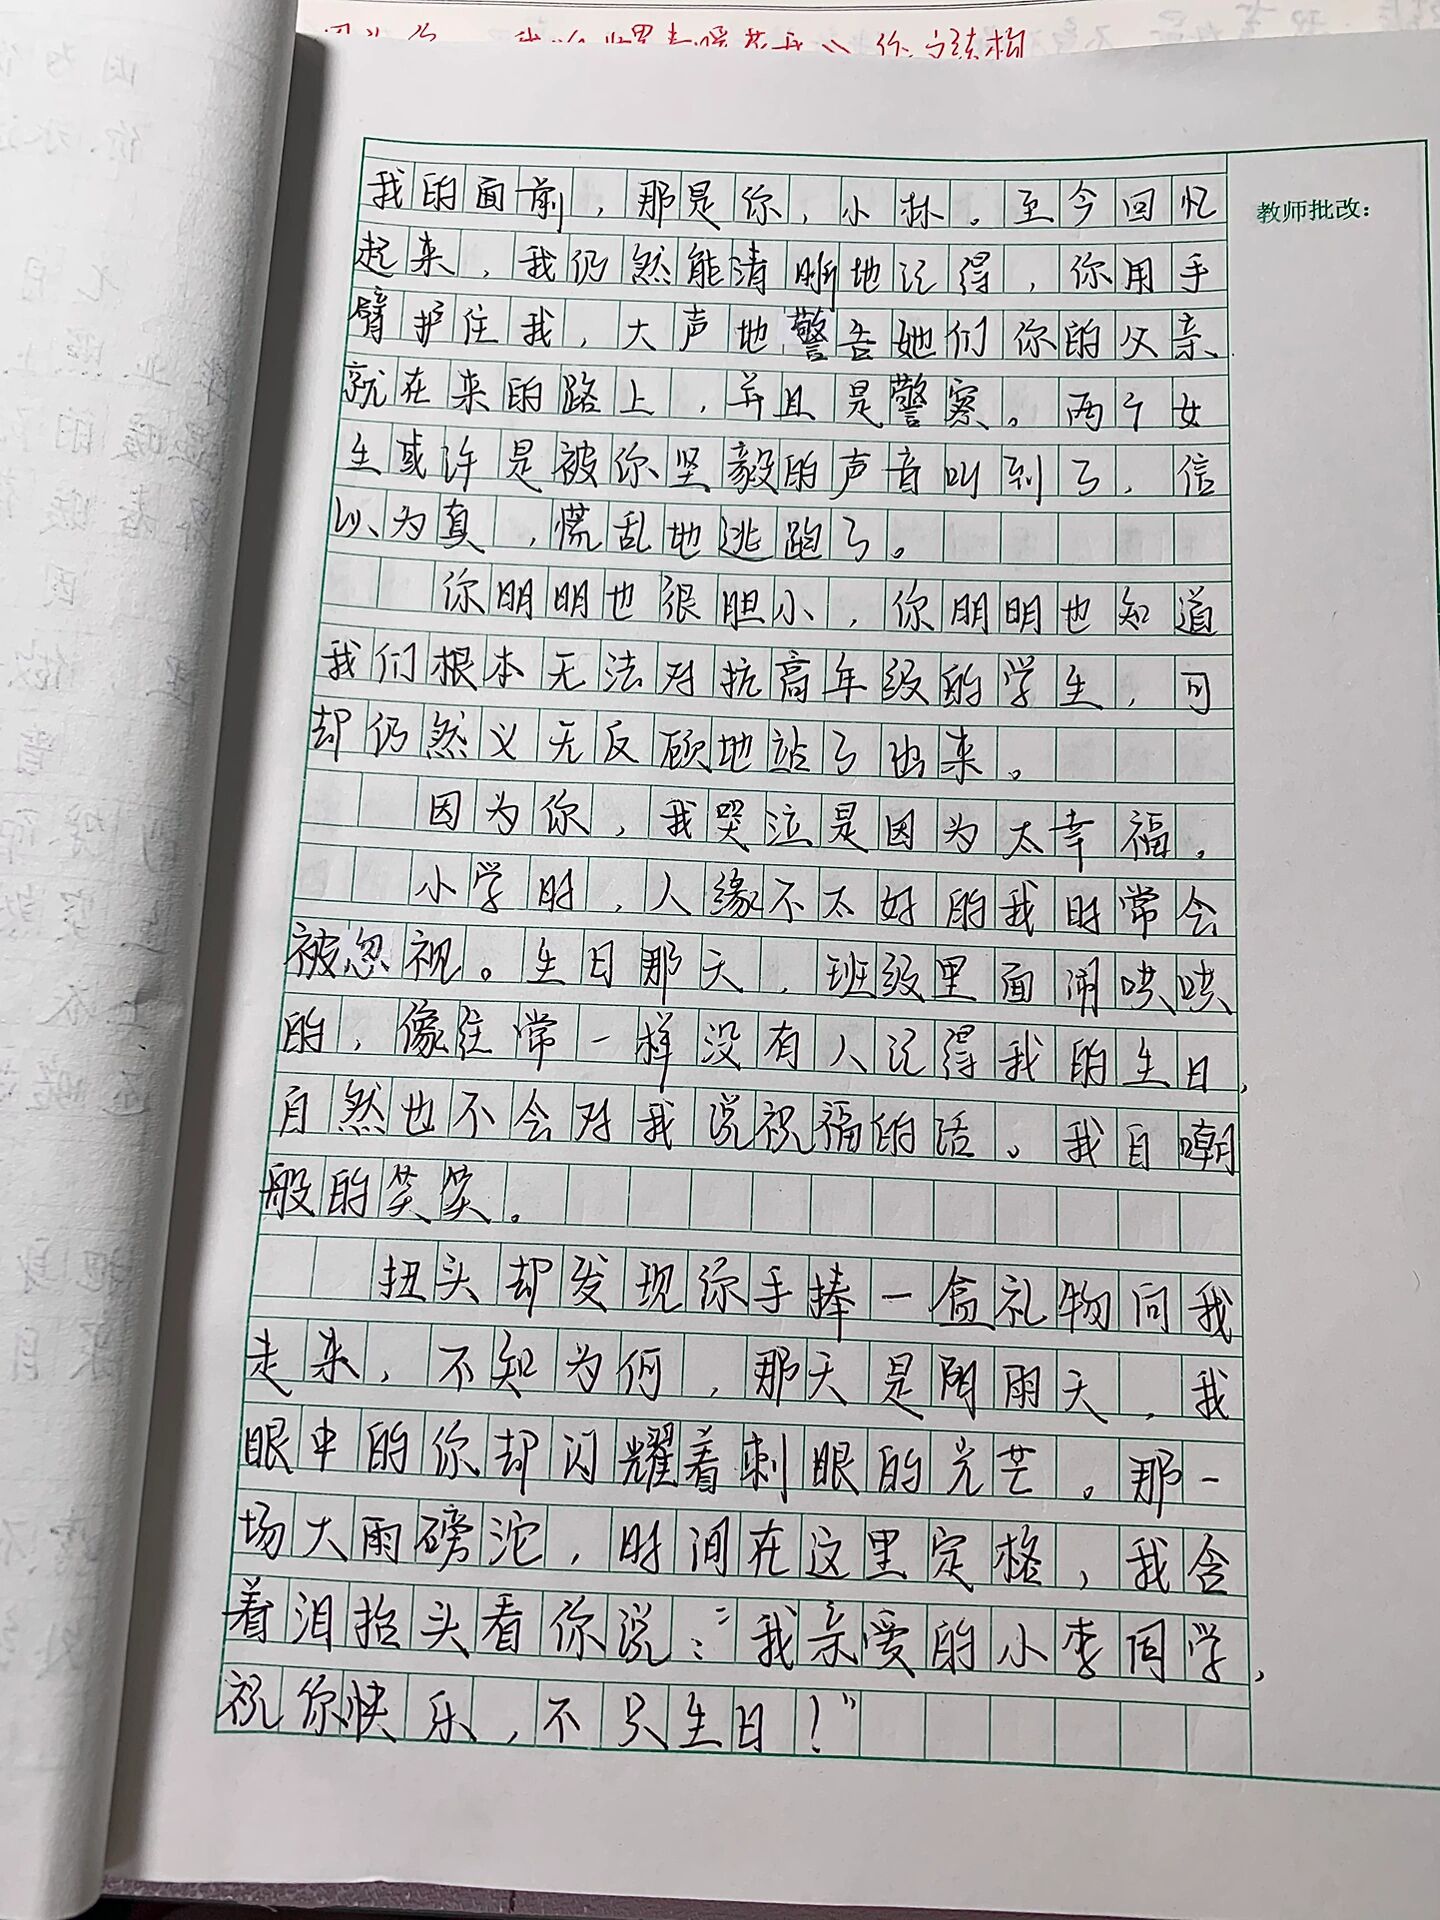 教师批改：
我的面前，那是你，小林。至今回忆
起来，我仍然能清晰地记得，你用手
臂护住我，大声地警告她们你的父亲
就在来的路上，并且是警察。两个女
生或许是被你坚毅的声音叫到了，信
以为真，慌乱地逃跑了。
你明明也很胆小，你明明也知道
我们根本无法对抗高年级的学生，可
却仍然义无反顾地站了出来。
因为你，我哭泣是因为太幸福。
小学时，人缘不太好的我时常会
被忽视。生日那天，班级里面闹哄哄
的，像往常一样没有人记得我的生日，
自然也不会对我说祝福的话。我自嘲
般的笑笑。
扭头却发现你手捧一盒礼物向我
走来，不知为何，那天是阴雨天，我
眼中的你却闪耀着刺眼的光芒。那一
场大雨磅沱，时间在这里定格，我含
着泪抬头看你说：“我亲爱的小李同学，
祝你快乐，不只生日！”